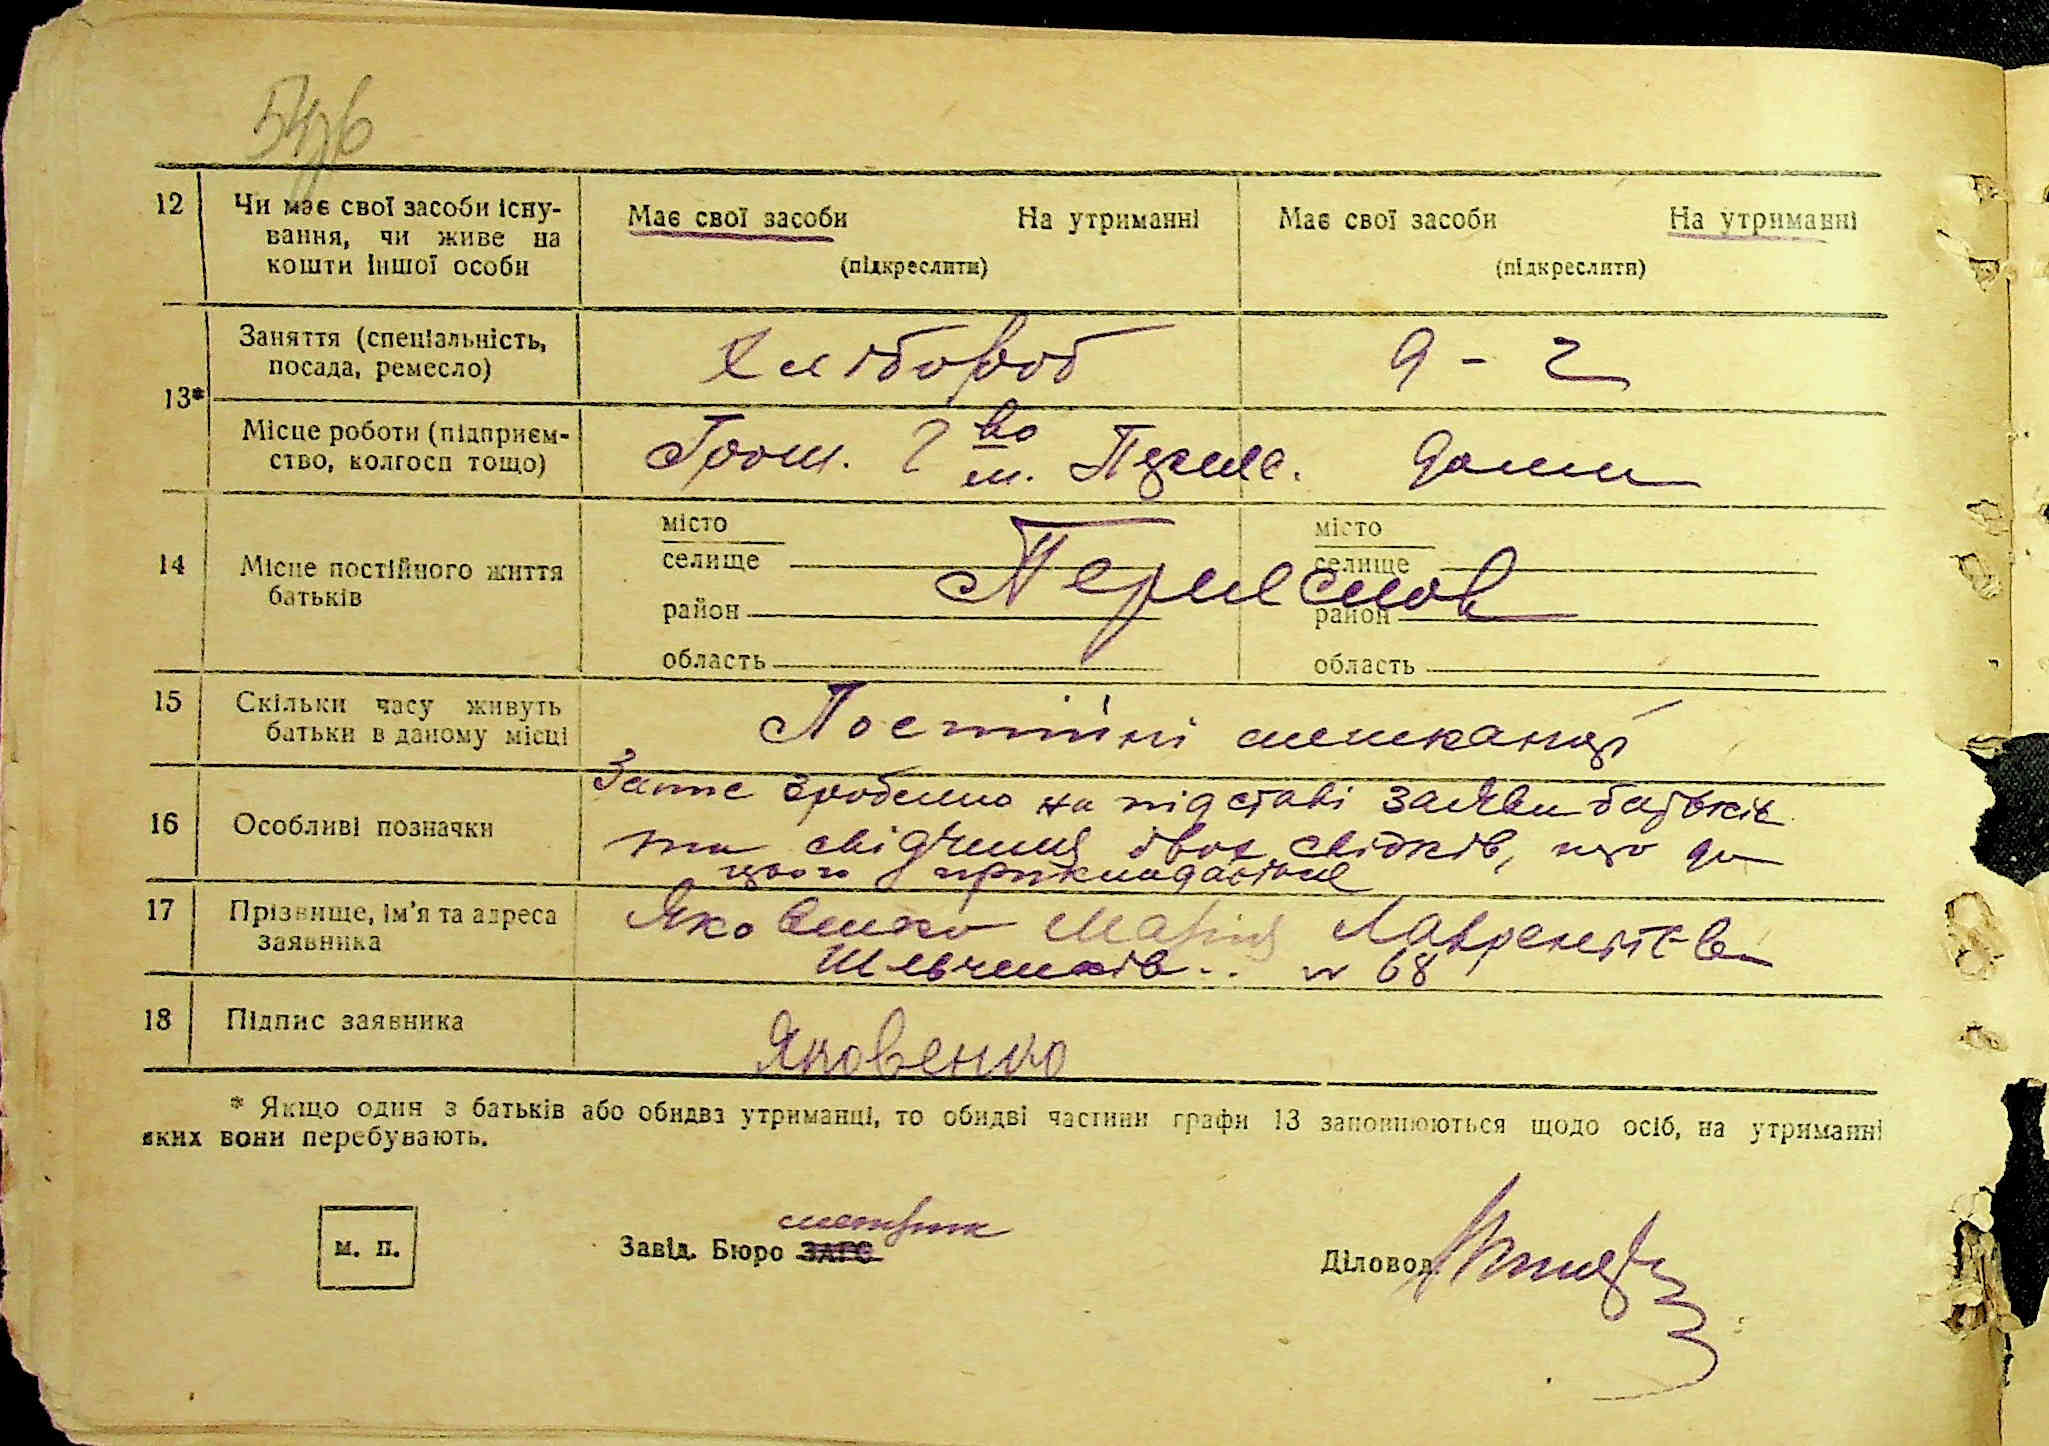 12 Чи має свої засоби існу- Має свої засоби На утриманні Має свої засоби На утриманні
вання, чи живе на
кошти іншої особи (підкреслити) (підкреслити)
Заняття (спеціальність, Хлібороб д - г
посада, ремесло)
13*
Місце роботи (підприєм- Гром. г-во дома
ство, колгосп тощо)
місто місто
14 Місце постійного життя селище селище
батьків Переяслов
район район
область область
15 Скільки часу живуть Постійні мешканці
батьки в даному місці
Запис зроблено на підставі заяви батьків
16 Особливі позначки та свідчення двох свідків, що до
цього прикладається
17 Прізвище, ім'я та адреса Яковенко Марія Лаврентьев
заявника Шевченків.. № 68
18 Підпис заявника Яковенко
* Якщо один з батьків або обидва утриманці, то обидві частини графи 13 заповнюються щодо осіб, на утриманні
яких вони перебувають.
метрик
м. п. Завід. Бюро ЗАГС Діловод.